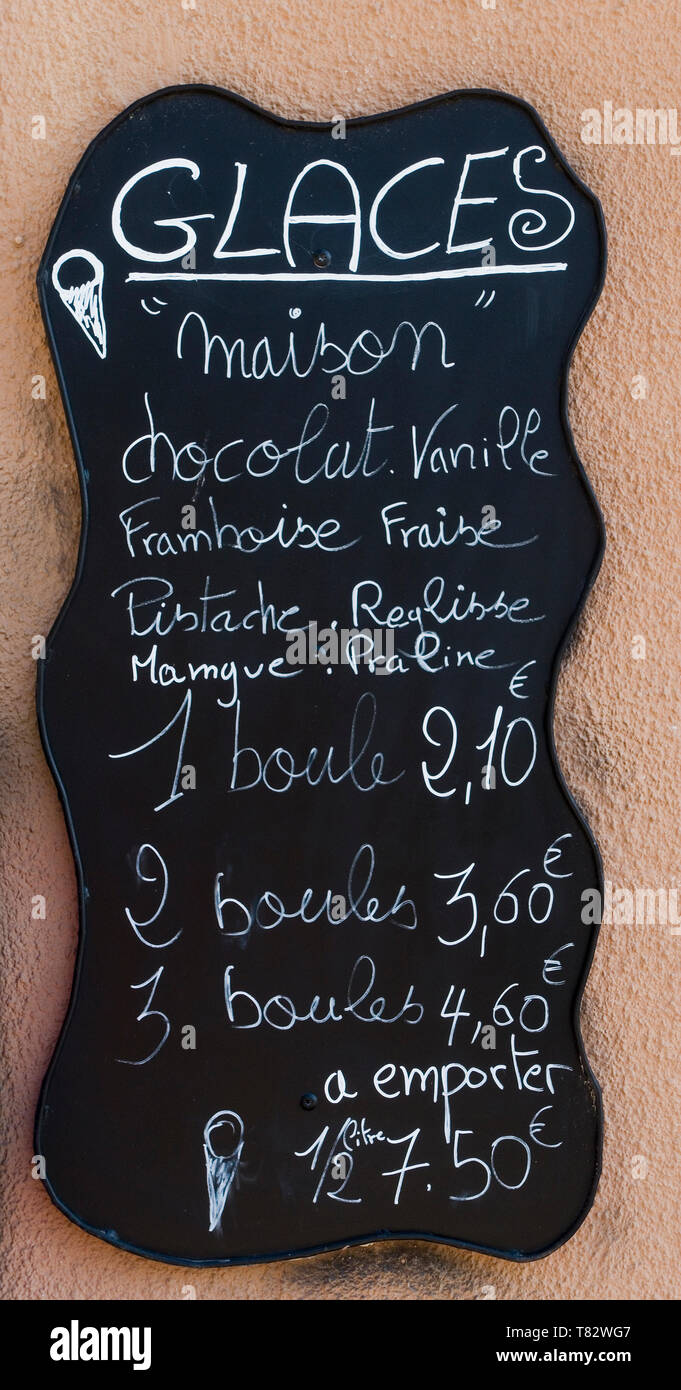 GLACES
"maison"
chocolat. Vanille
Framboise Fraise
Pistache. Reglisse
Mamgue : Praline
1 boule 2,10 €
2 boules 3,60 €
3 boules 4,60 €
a emporter
1/2 litre 7.50 €
alamy
Image ID: T82WG7
www.alamy.com